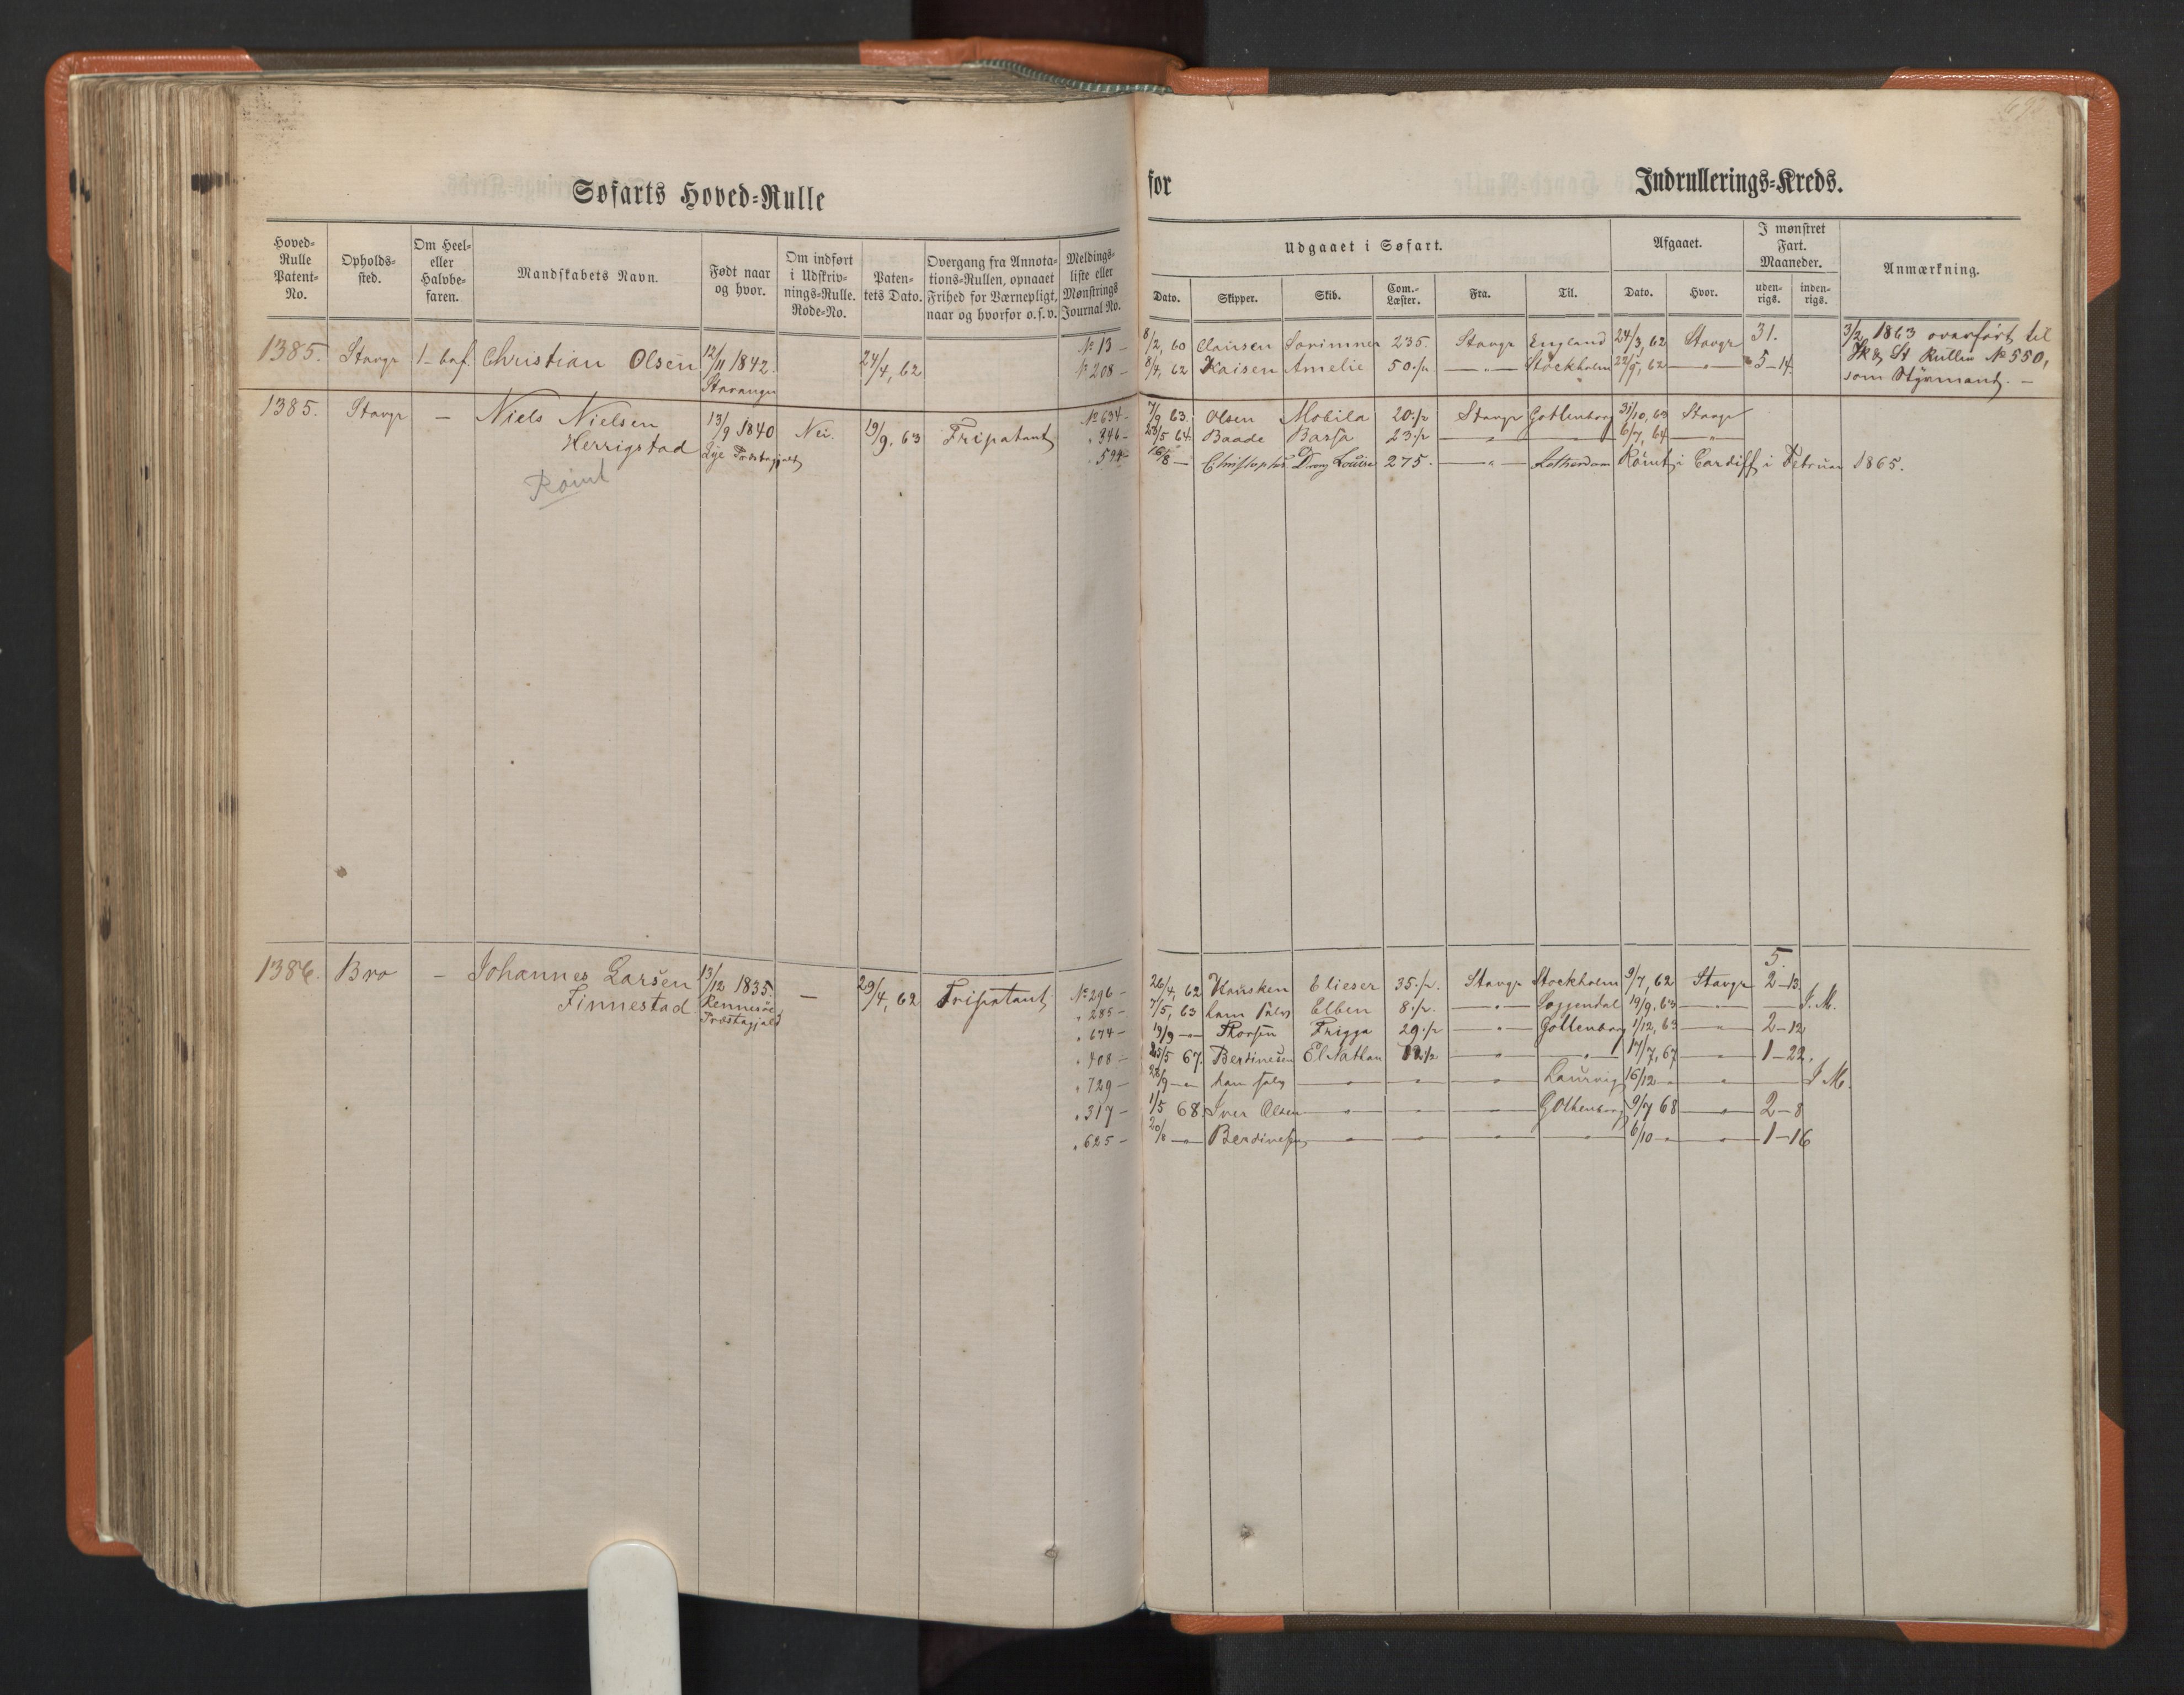 Søfarts Hoved-Rulle
for Indrullerings-Kreds.
Hoved-Rulle Patent-No.
Opholds-sted.
Om Heel- eller Halvbe-faren.
Mandskabets Navn.
Født naar og hvor.
Om indført i Udskriv-nings-Rulle. Rode-No.
Paten-tets Dato.
Overgang fra Annota-tions-Rullen, opnaaet Frihed for Værnepligt, naar og hvorfor o.s.v.
Meldings-liste eller Mønstrings Journal No.
Udgaaet i Søfart.
Dato. Skipper. Skib. Com.-Læster. Fra. Til.
Afgaaet.
Dato. Hvor.
I mønstret Fart. Maaneder.
uden-rigs. inden-rigs.
Anmærkning.
1385. Stavgr 1-bef. Christian Olsen 12/11 1842. Stavanger 24/4, 62
No 13 - 8/2, 60 Clausen 235. Stavgr England 24/3, 62 Stavgr 31.
No 208 - 8/4, 62 Kaisen Amelie 50 Stockholm 22/9, 62 5-14
3/2 1863 overført til
St Rullen No 550,
som Styrmand. -
1385. Stavgr - Niels Nielsen Herrigstad 13/9 1840 Lye Præstegjæld Nei. 19/9, 63 Fripatent
Rømt
No 634 - 7/9 63. Olsen Mobila 20 Stavgr Gottenborg 31/10, 63 Stavgr
" 346 - 28/5 64. Baade 23 - " - 6/7, 64 - " -
" 594 - 16/8 - Louise 275. - " - Rømt i Cardiff i Februar 1865.
1386. Bro - Johannes Larsen Finnestad 13/12 1835. Rennesøe Præstegjæld - 29/4, 62 Fripatent
5
No 296 - 26/4, 62 Elieser 35 Stavgr Stockholm 9/7, 62 Stavgr 2-13.
" 285 - 7/5, 63 ham selv Elben 8 - " - Soggendal 19/9, 63 - " - I M.
" 674 - 19/9 - " Frigga 29 - " - Gottenborg 1/12, 63 - " - 2-12
" 408 - 25/5 67. Berdinesen El Nathan - " - - " - 17/7, 67 - " - 1-22.
" 729 - 28/9 - " ham selv - " - - " - - " - Laurvig 16/12 - " - - " - I M.
" 317 - 1/5 68. Iver Olsen - " - - " - - " - Gothenborg 9/7 68 - " - 2-8
" 625 - 20/8 - " Berdinesen - " - - " - - " - - " - 6/10 - " - - " - 1-16